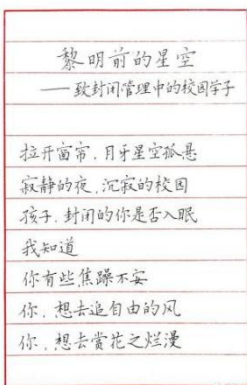 黎明前的星空
——致封闭管理中的校园学子
拉开窗帘,月牙星空孤悬
寂静的夜,沉寂的校园
孩子,封闭的你是否入眠
我知道
你有些焦躁不安
你,想去追自由的风
你,想去赏花之烂漫